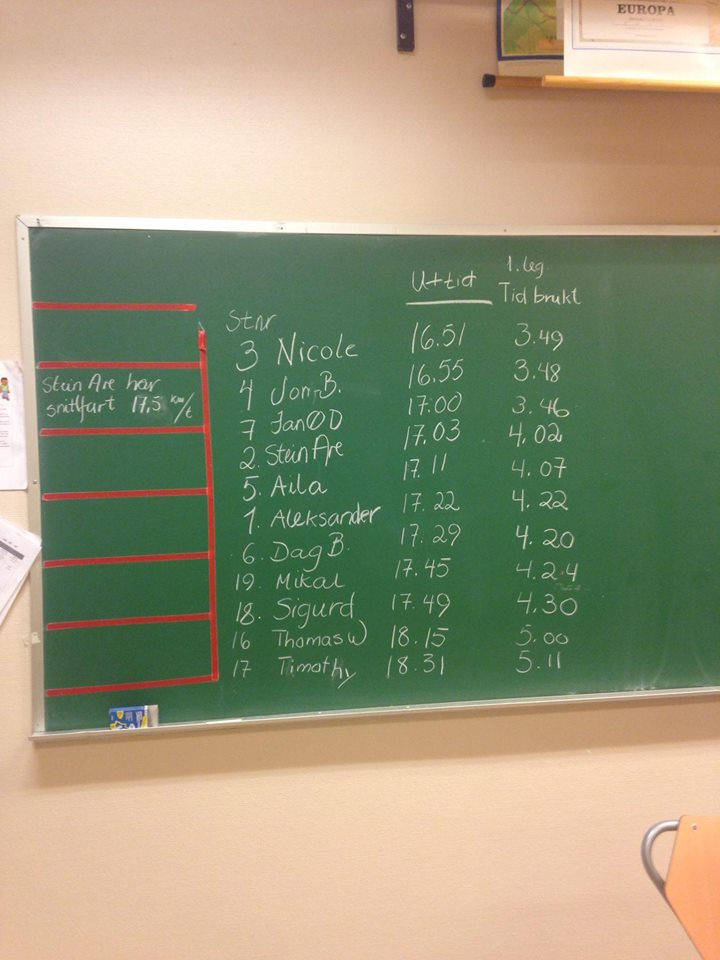 EUROPA
1. leg
Uttid Tid brukt
Stnr
3 Nicole 16.51 3.49
4 Jon B. 16.55 3.48
Stein Are har
snittfart 17,5 km/t
7 Jan Ø D 17.00 3.46
2. Stein Are 17.03 4.02
5. Aila 17.11 4.07
1. Aleksander 17.22 4.22
6. Dag B. 17.29 4.20
19. Mikal 17.45 4.24
18. Sigurd 17.49 4.30
16 Thomas W 18.15 5.00
17 Timothy 18.31 5.11